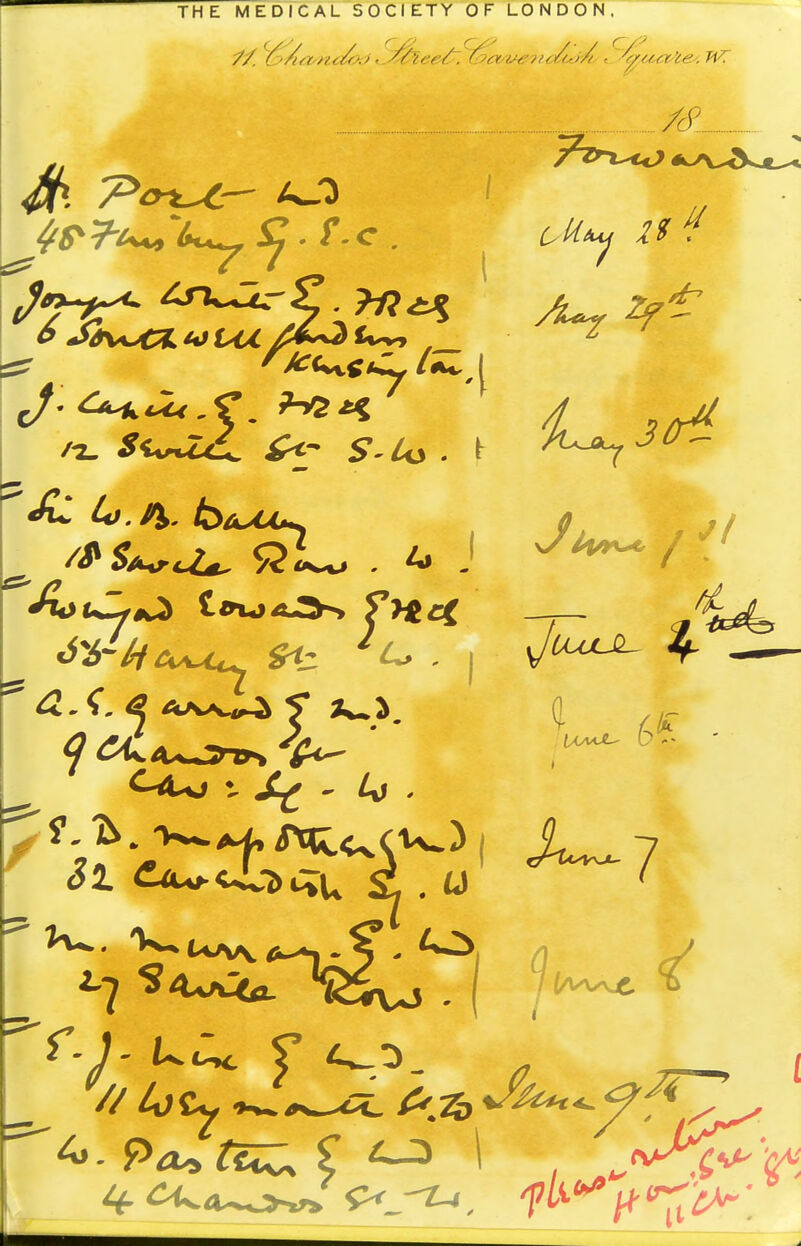 THE MEDICAL SOCIETY OF LONDON,
11. Chandos Street. Cavendish Square. W.
18
Forwarded
H. Port MD
48 Finsbury Sq. E.C. May 28th
Joseph White Esq. FRCS May 29th
6 Southwell Gardens
Kensington.
J. Cantlie. Esq. FRCS
12 Seville St S.W. May 30th
Sir W. B. Dalby
18 Savile Row. W. June 1st
Swinford Edwards Esq FRCS
55 Harley St W. June 4th
A. E. Garrod Esq M.D.
9 Chandos St June 6th
Cav: Sq - W.
E. D. Mapother Esq MD
32 Cavendish Sq. W June 7
M. Murray. Esq. MD
27 Savile Row. June 8
E. J. Nix Esq M.D.
11 Weymouth St. W June 9th
W. Pasteur Esq MD
4 Chandos St. W.
Please return
Hon. Sec.
11 Ch.